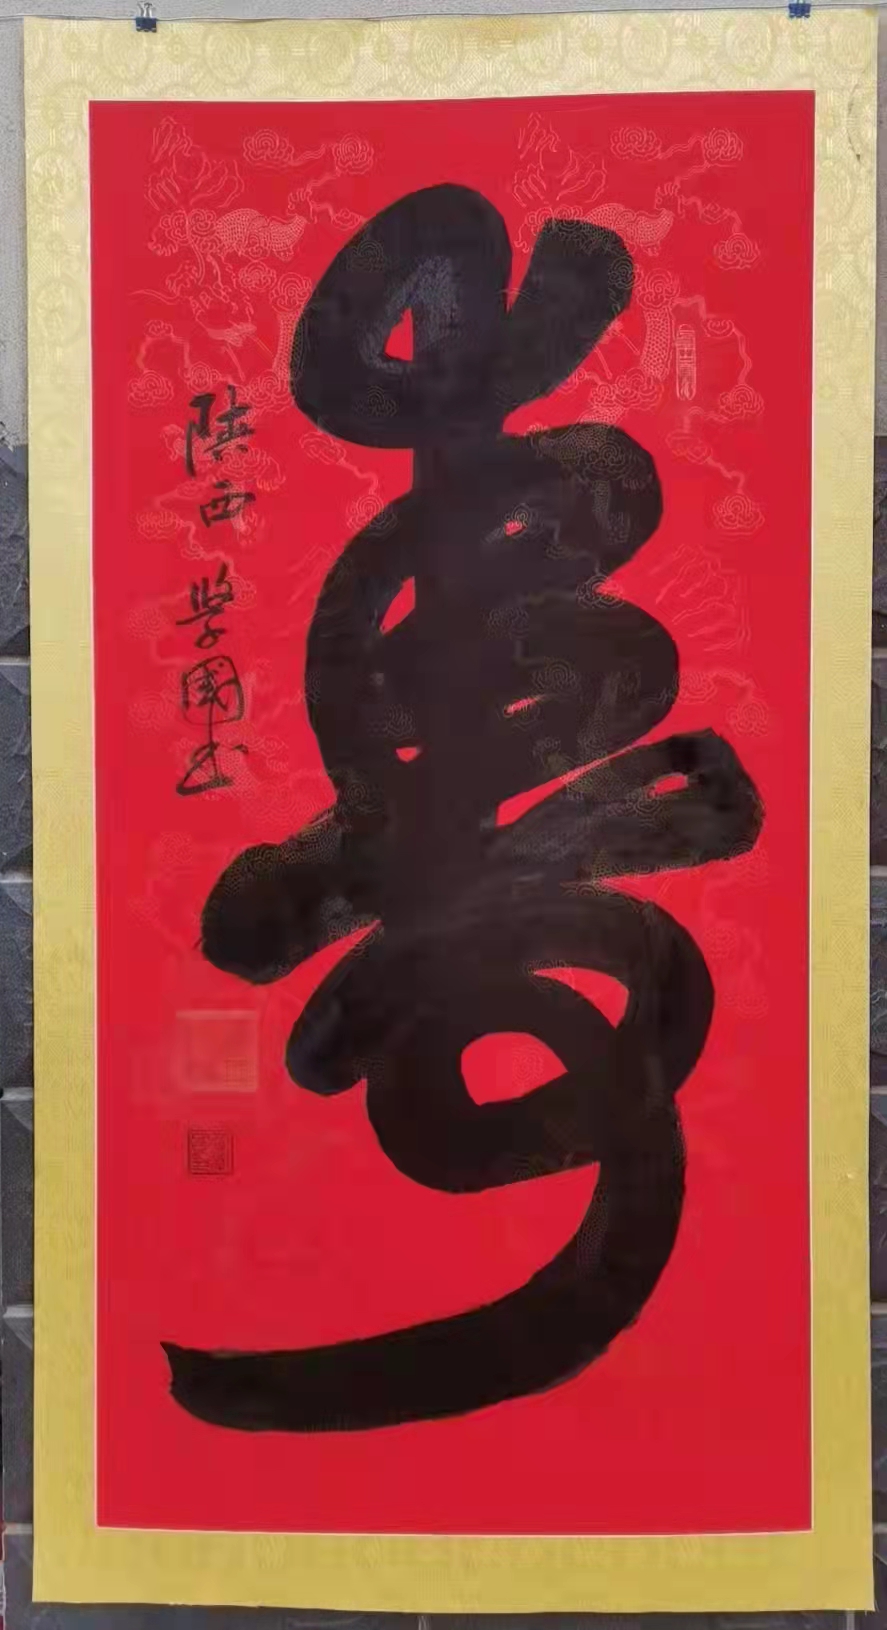 壽
陕西 学國书